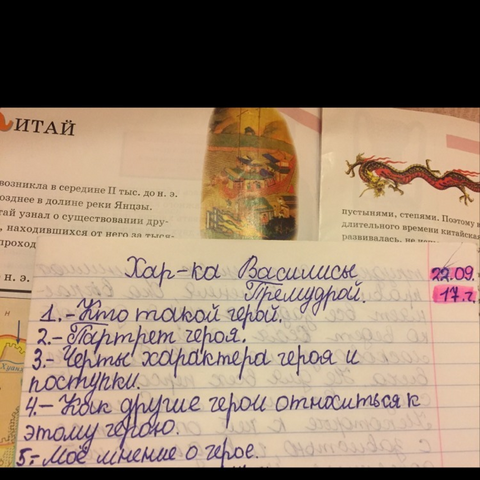 ИТАЙ
возникла в середине II тыс. до н. э.
озднее в долине реки Янцзы.
тай узнал о существовании дру-
, находившихся от него за тыся-
проход
н. э.
пустынями, степями. Поэтому в
длительного времени китайская
развивалась, не
Хар-ка Василисы
Премудрой.
22.09.
17.г.
1.-Кто такой герой.
2.-Партрет героя.
3.-Черты характера героя и
поступки.
4.-Как другие герои относиться к
этому герою.
5.-Моё мнение о герое.